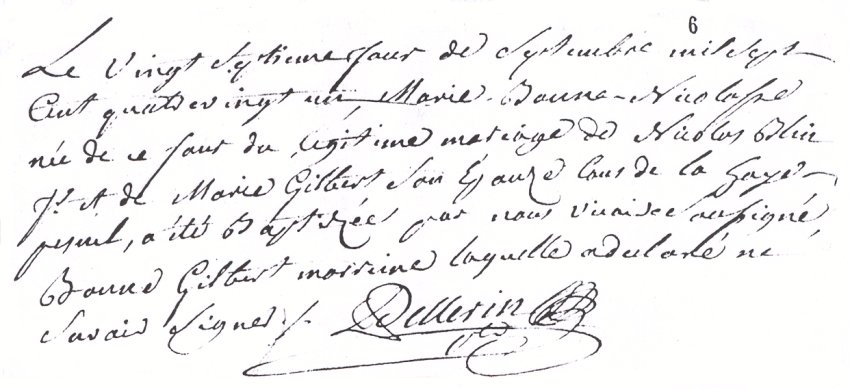 6
Le vingt septieme jour de Septembre mil Sept
Cent quatrevingt un, Marie Bonne Nicolasse
née de ce jour du légitime mariage de Nicolas Blin
Js. et de Marie Gilbert Son Epouze tous de la Haye
pesnil, a été Baptizée par nous vicaire Soussigné,
Bonne Gilbert marraine laquelle a déclaré ne
Savoir Signer /.
Pellerin
vic